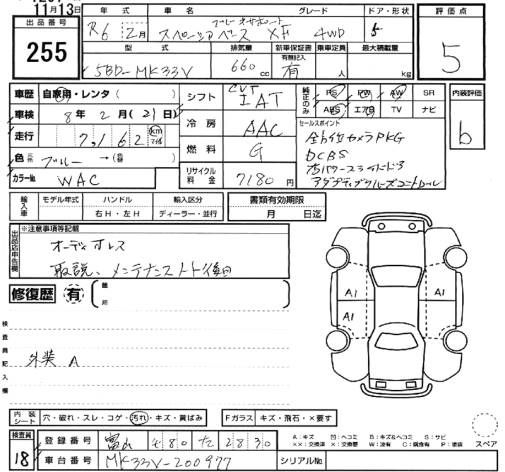 11月13日
出品番号 255
年式 車名 グレード ドア・形状 評価点
R6 2月 スペーシアベース XF 4WD 5
5
型式 排気量 新車保証書 乗車定員 最大積載量
5BD-MK33V 660cc 有無記入 有 人 kg
車歴 自家用・レンタ( ) シフト CVT IAT 純正のみ PS PW AW SR 内装評価
ABS エアB TV ナビ
b
車検 8年2月(21日) 冷房 AAC セールスポイント
全方位カメラPKG
走行 7,162 km マイル 燃料 G DCBS
色 ブルー →( ) 替色
カラーNo. WAC リサイクル料金 7180円 アダプティブクルーズコントロール
輸入車 モデル年式 ハンドル 輸入区分 書類有効期限
右H・左H ディーラー・並行 月 日迄
出品店申告欄 ※注意事項等記載
オーディオレス
取説、メンテナンスノート後日
修復歴 有
検査員記入欄
外装 A
A1 A1 A1
内装シート 穴・破れ・スレ・コゲ・汚れ・キズ・黄ばみ Fガラス キズ・飛石・×要す
スペア
検査員 18 登録番号 富山 480 た 2830
車台番号 MK33V-200977 シリアルNo.
A:キズ U:ヘコミ B:キズ&ヘコミ S:サビ
××:交換済 X:要交換 W:波有 C:腐食有 P:塗装